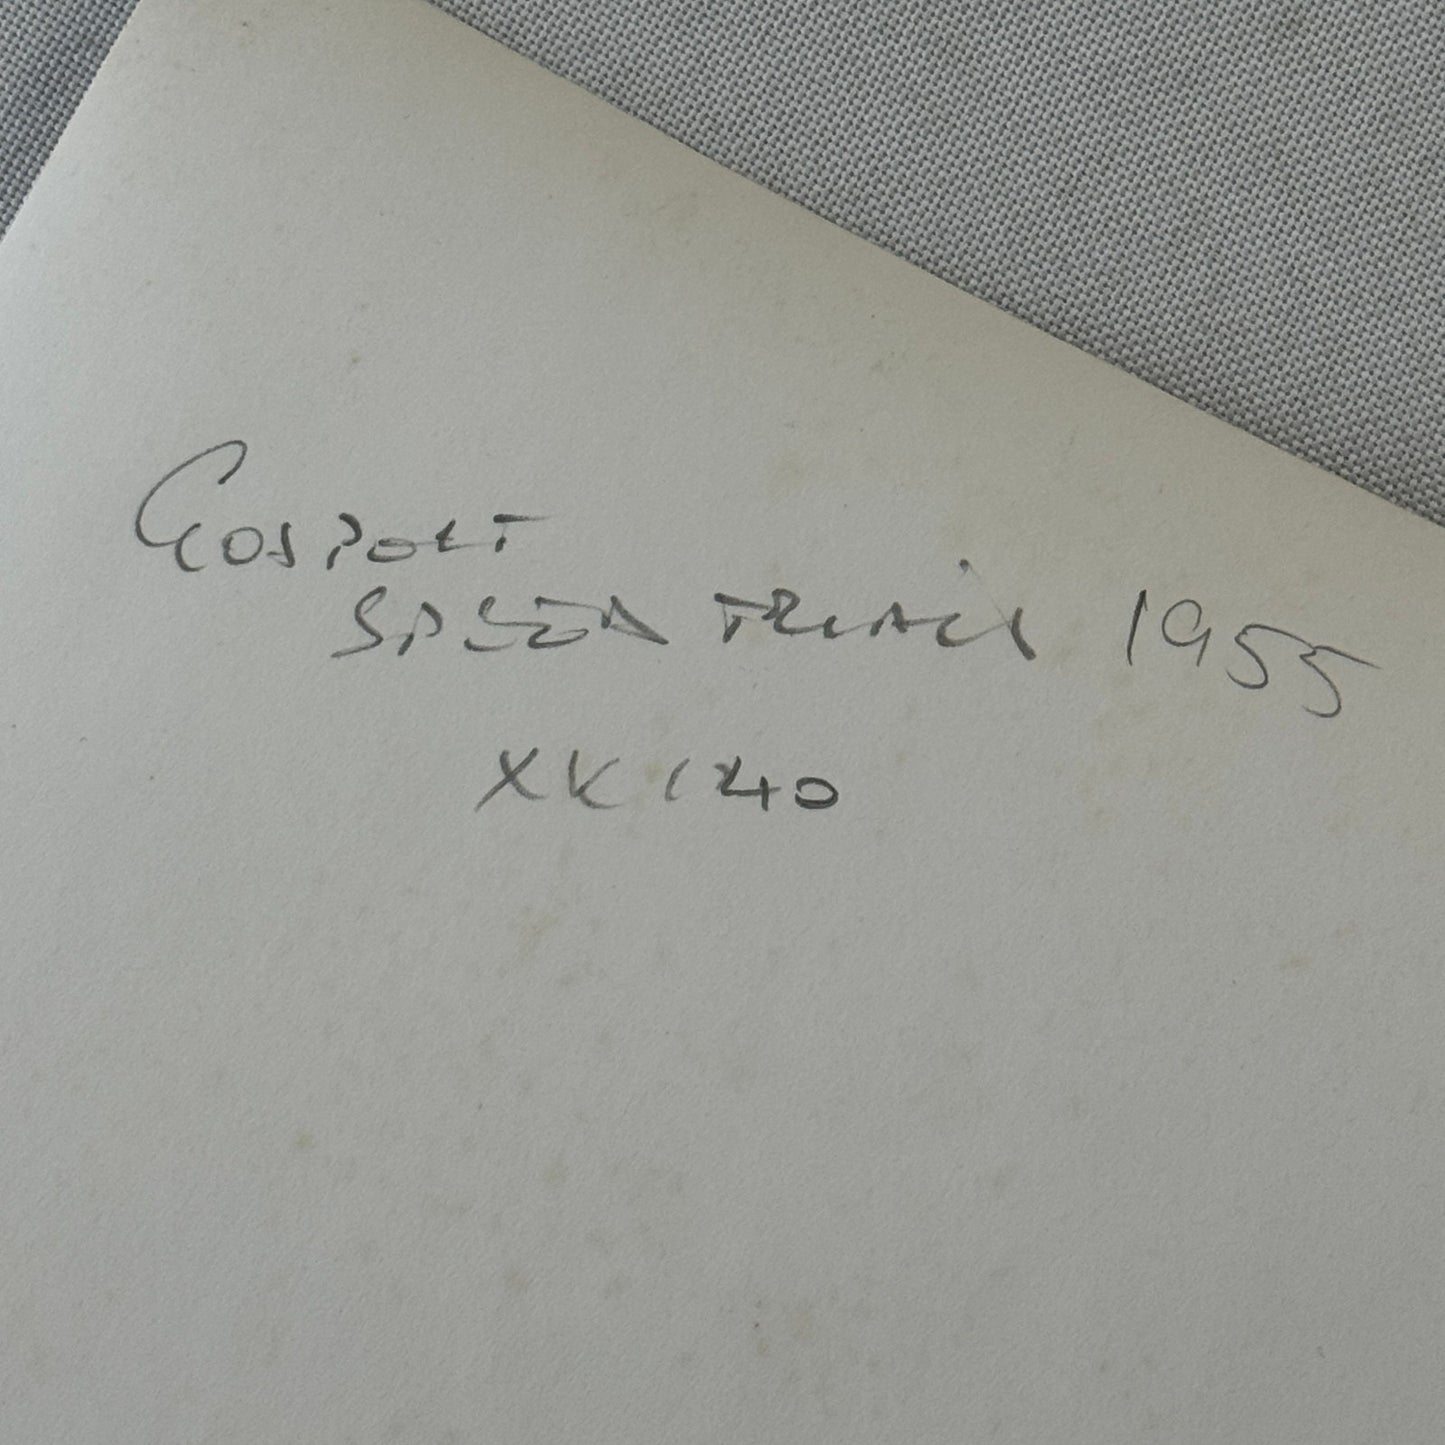 GOSPORT
SPEED TRIALS 1955
XK 140